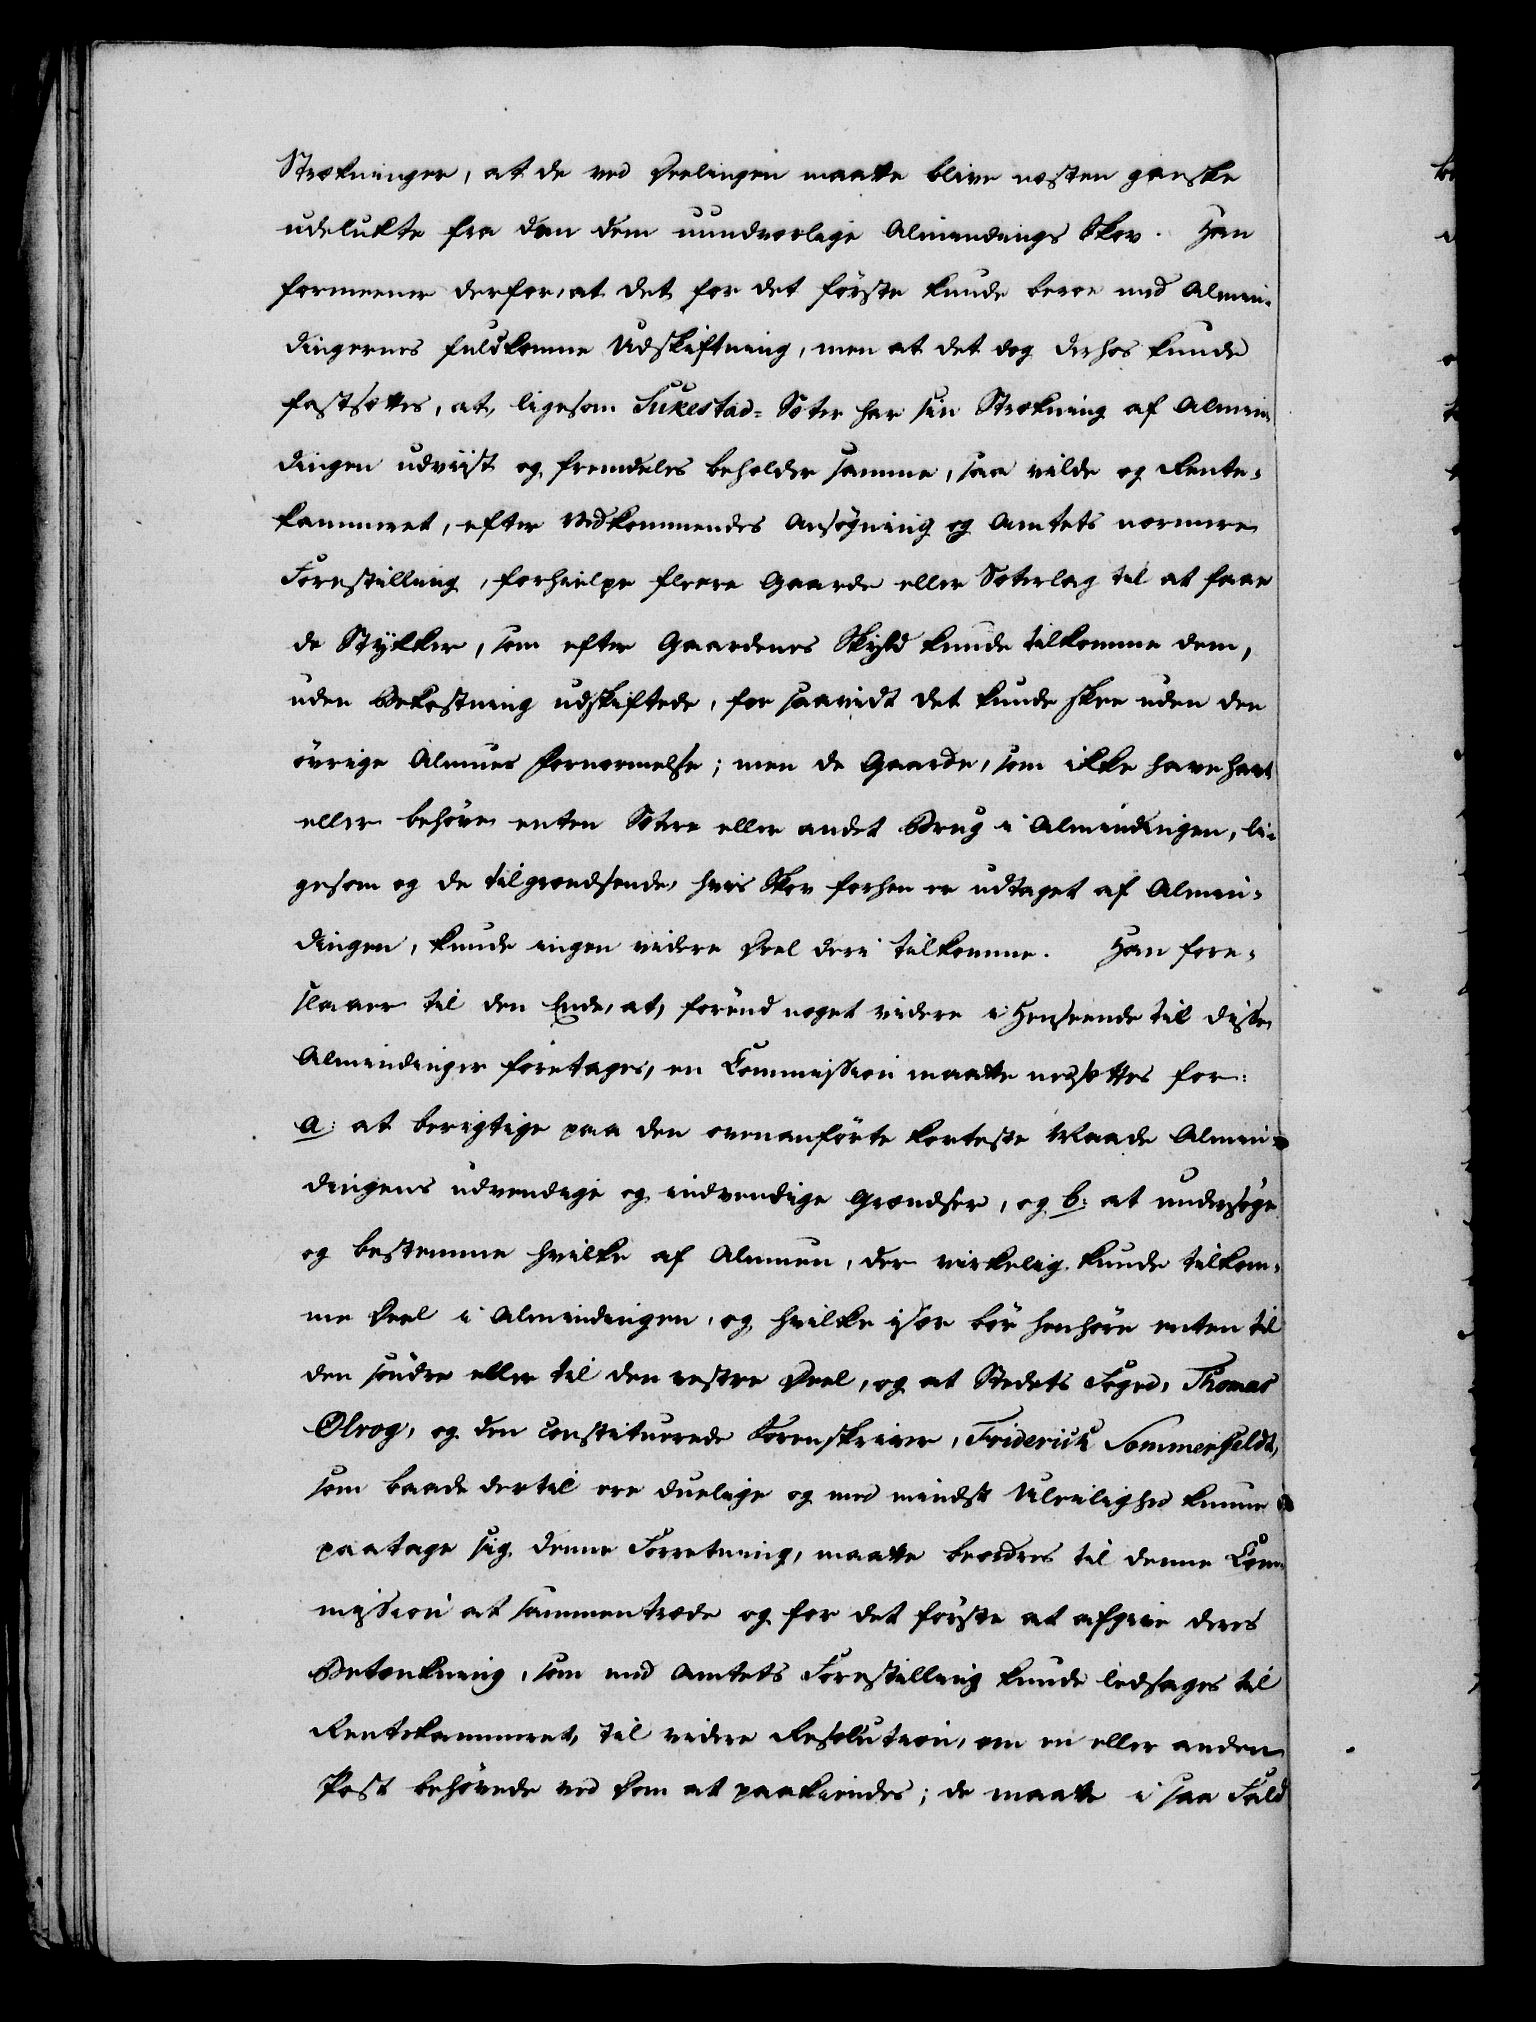 Strækninger, at de ved Deelingen maatte blive næsten ganske
udelukte fra den dem uundværlige Almindings Skov. Han
formeener derfor, at det for det förste kunde beroe med Almin-
dingernes fuldkomne Udskiftning, men at det dog derhos kunde
fastsættes, at, ligesom Sukestad-Sæter har sin Strækning af Almin-
dingen udviist og fremdeles beholder samme, saa vilde og Rente-
kammeret, efter Vedkommendes Ansögning og Amtets nærmere
Forestilling, forhielpe fleere Gaarde eller Sæterlag til at faae
de Stykker, som efter Gaardenes Skyld kunde tilkomme dem,
uden Bekostning udskiftede, for saavidt det kunde skee uden den
övrige Almues Fornærmelse; men de Gaarde, som ikke have havt
eller behöve enten Sætre eller andet Brug i Almindingen, li-
gesom og de tilgrændsende, hvis Skov forhen er udtaget af Almin-
dingen, kunde ingen videre Deel deri tilkomme. Han fore-
slaaer til den Ende, at, förend noget videre i Henseende til disse
Almindinger företages, en Commission maatte nedsættes for:
a: at berigtige paa den ovenanförte korteste Maade Almin-
dingens udvendige og indvendige Grændser, og b: at undersöge
og bestemme hvilke af Almuen, der virkelig kunde tilkom-
me Deel i Almindingen, og hvilke især bör henhöre enten til
den söndre eller til den vestre Deel, og at Stedets Foged, Thomas
Olrog, og den constituerede Sorenskriver, Friderich Sommerfeldt,
som baade dertil ere duelige og med mindst Uleilighed kunne
paatage sig denne Forretning, maatte beordres til denne Com-
mission at sammentræde og for det förste at afgive deres
Betænkning, som med Amtets Forestilling kunde ledsages til
Rentekammeret, til videre Resolution, om en eller anden
Post behövede ved Dom at paakiendes; de maatte i saa Fald